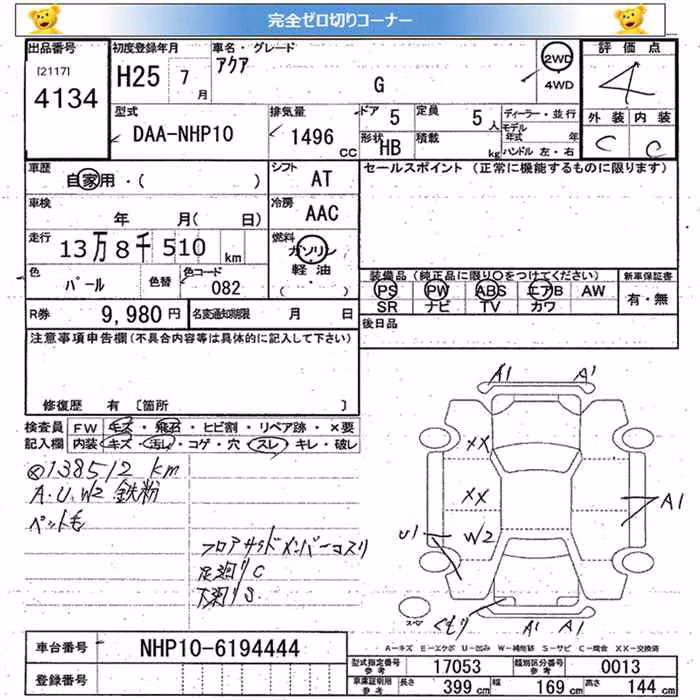 完全ゼロ切りコーナー
出品番号
[2117]
4134
初度登録年月
H25 7月
車名・グレード
アクア
G
2WD
4WD
評価点
4
外装 内装
C C
型式
DAA-NHP10
排気量
1496 CC
ドア 5
定員 5人
形状 HB
積載 kg
ディーラー・並行
モデル年式 年
ハンドル 左・右
車歴
自家用・( )
シフト
AT
セールスポイント (正常に機能するものに限ります)
車検
年 月( 日)
冷房
AAC
走行
13万8千510 km
燃料
ガソリン
軽油
( )
色
パール
色替
色コード
082
装備品(純正品に限り〇をつけてください)
PS PW ABS エアB AW
SR ナビ TV カワ
新車保証書
有・無
R券 9,980円
名変通知期限 月 日
後日品
注意事項申告欄(不具合内容等は具体的に記入して下さい)
修復歴 有 〔箇所 〕
検査員記入欄
FW キズ・飛石・ヒビ割・リペア跡・×要
内装 キズ・汚れ・コゲ・穴・スレ・キレ・破レ
138512 km
A.U.W2 鉄粉
ペット毛
フロアサイドメンバーコスリ
足廻りC
下廻りS
A1 A1
XX
XX
A1
U1
W2
くもり
A1 A1
スペア
A-キズ E-エクボ U-凹み W-補修跡 S-サビ C-腐食 XX-交換済
車台番号 NHP10-6194444
登録番号
型式指定番号 参考 17053
類別区分番号 参考 0013
車庫証明用 参考 長さ 399cm 幅 169cm 高さ 144cm